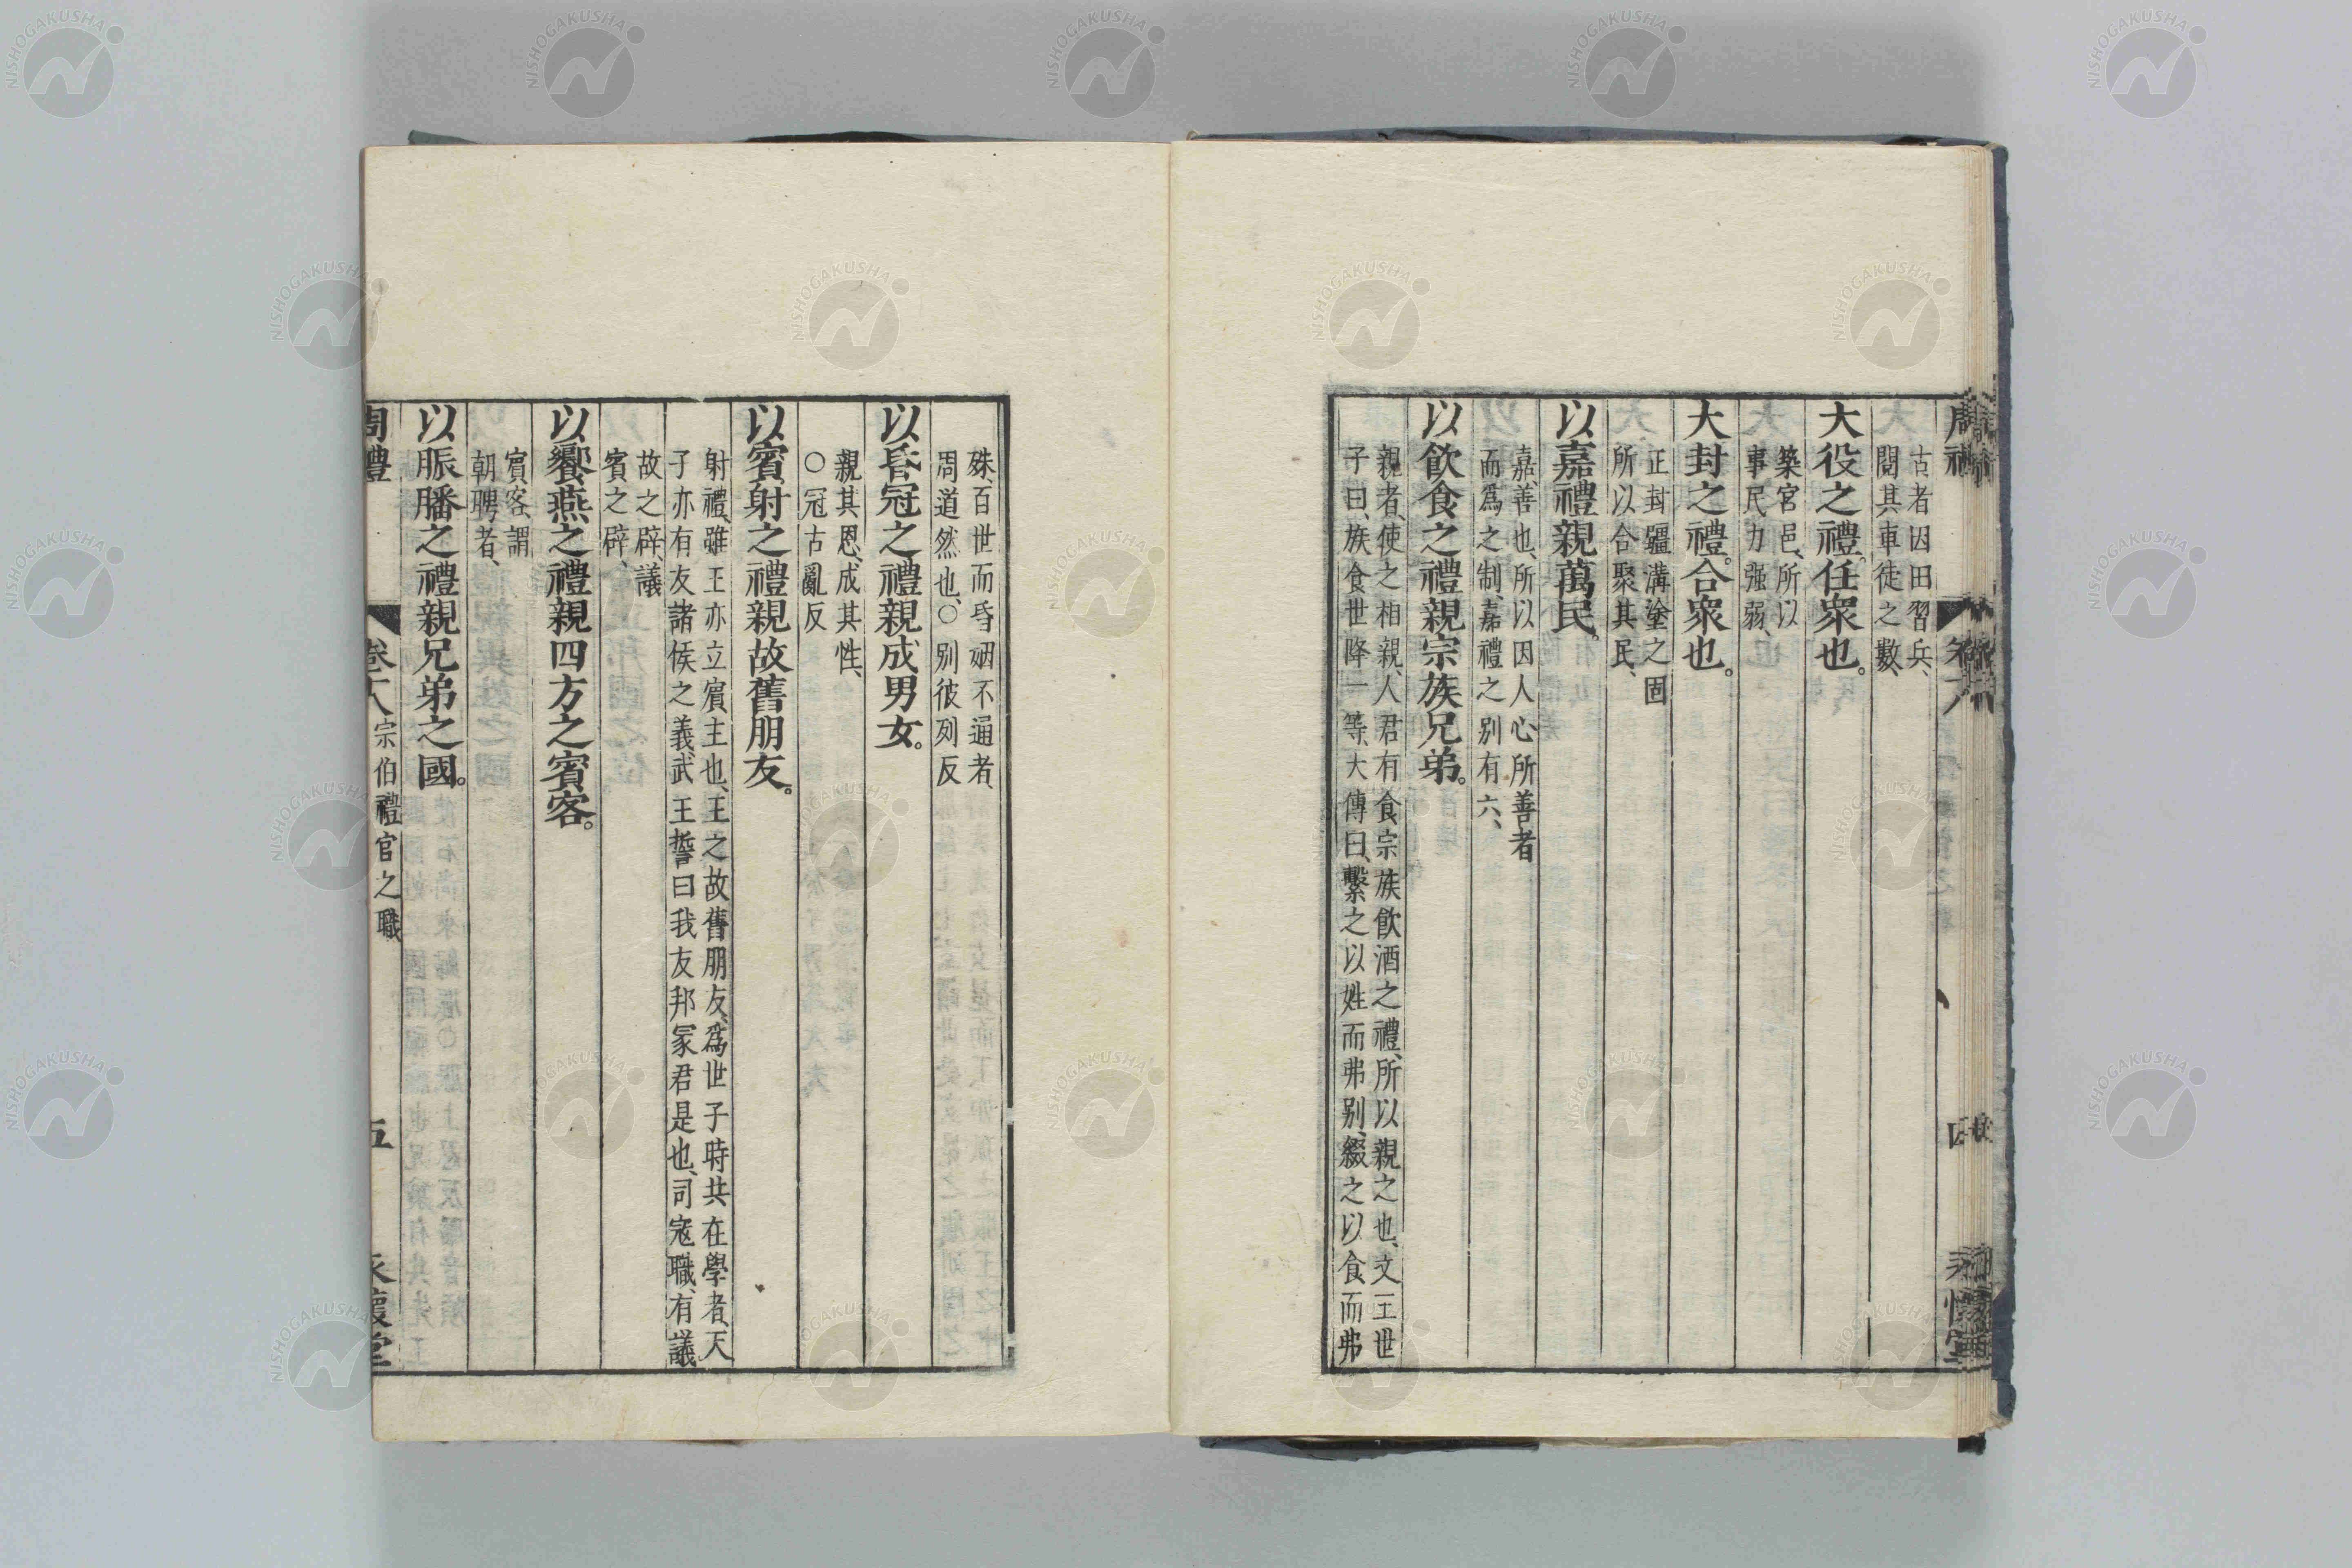 古者因田習兵、
閱其車徒之數、
大役之禮。任衆也。
築宮邑、所以
事民力强弱、
大封之禮。合衆也。
正封疆溝塗之固
所以合聚其民、
以嘉禮親萬民。
嘉、善也、所以因人心所善者
而爲之制、嘉禮之別有六、
以飲食之禮親宗族兄弟。
親者、使之相親、人君有食宗族飲酒之禮、所以親之也、文王世
子曰、族食世降一等、大傳曰、繫之以姓而弗別、綴之以食而弗
殊、百世而昏姻不通者、
周道然也、○別彼列反
以昏冠之禮親成男女。
親其恩、成其性、
○冠古亂反
以賓射之禮親故舊朋友。
射禮、雖王亦立賓主也、王之故舊朋友、爲世子時共在學者、天
子亦有友諸侯之義、武王誓曰我友邦冢君是也、司寇職、有議
故之辟、議
賓之辟、
以饗燕之禮親四方之賓客。
賓客、謂
朝聘者、
以脤膰之禮親兄弟之國。
周禮
卷十八
宗伯禮官之職
五
永懷堂
NISHOGAKUSHA